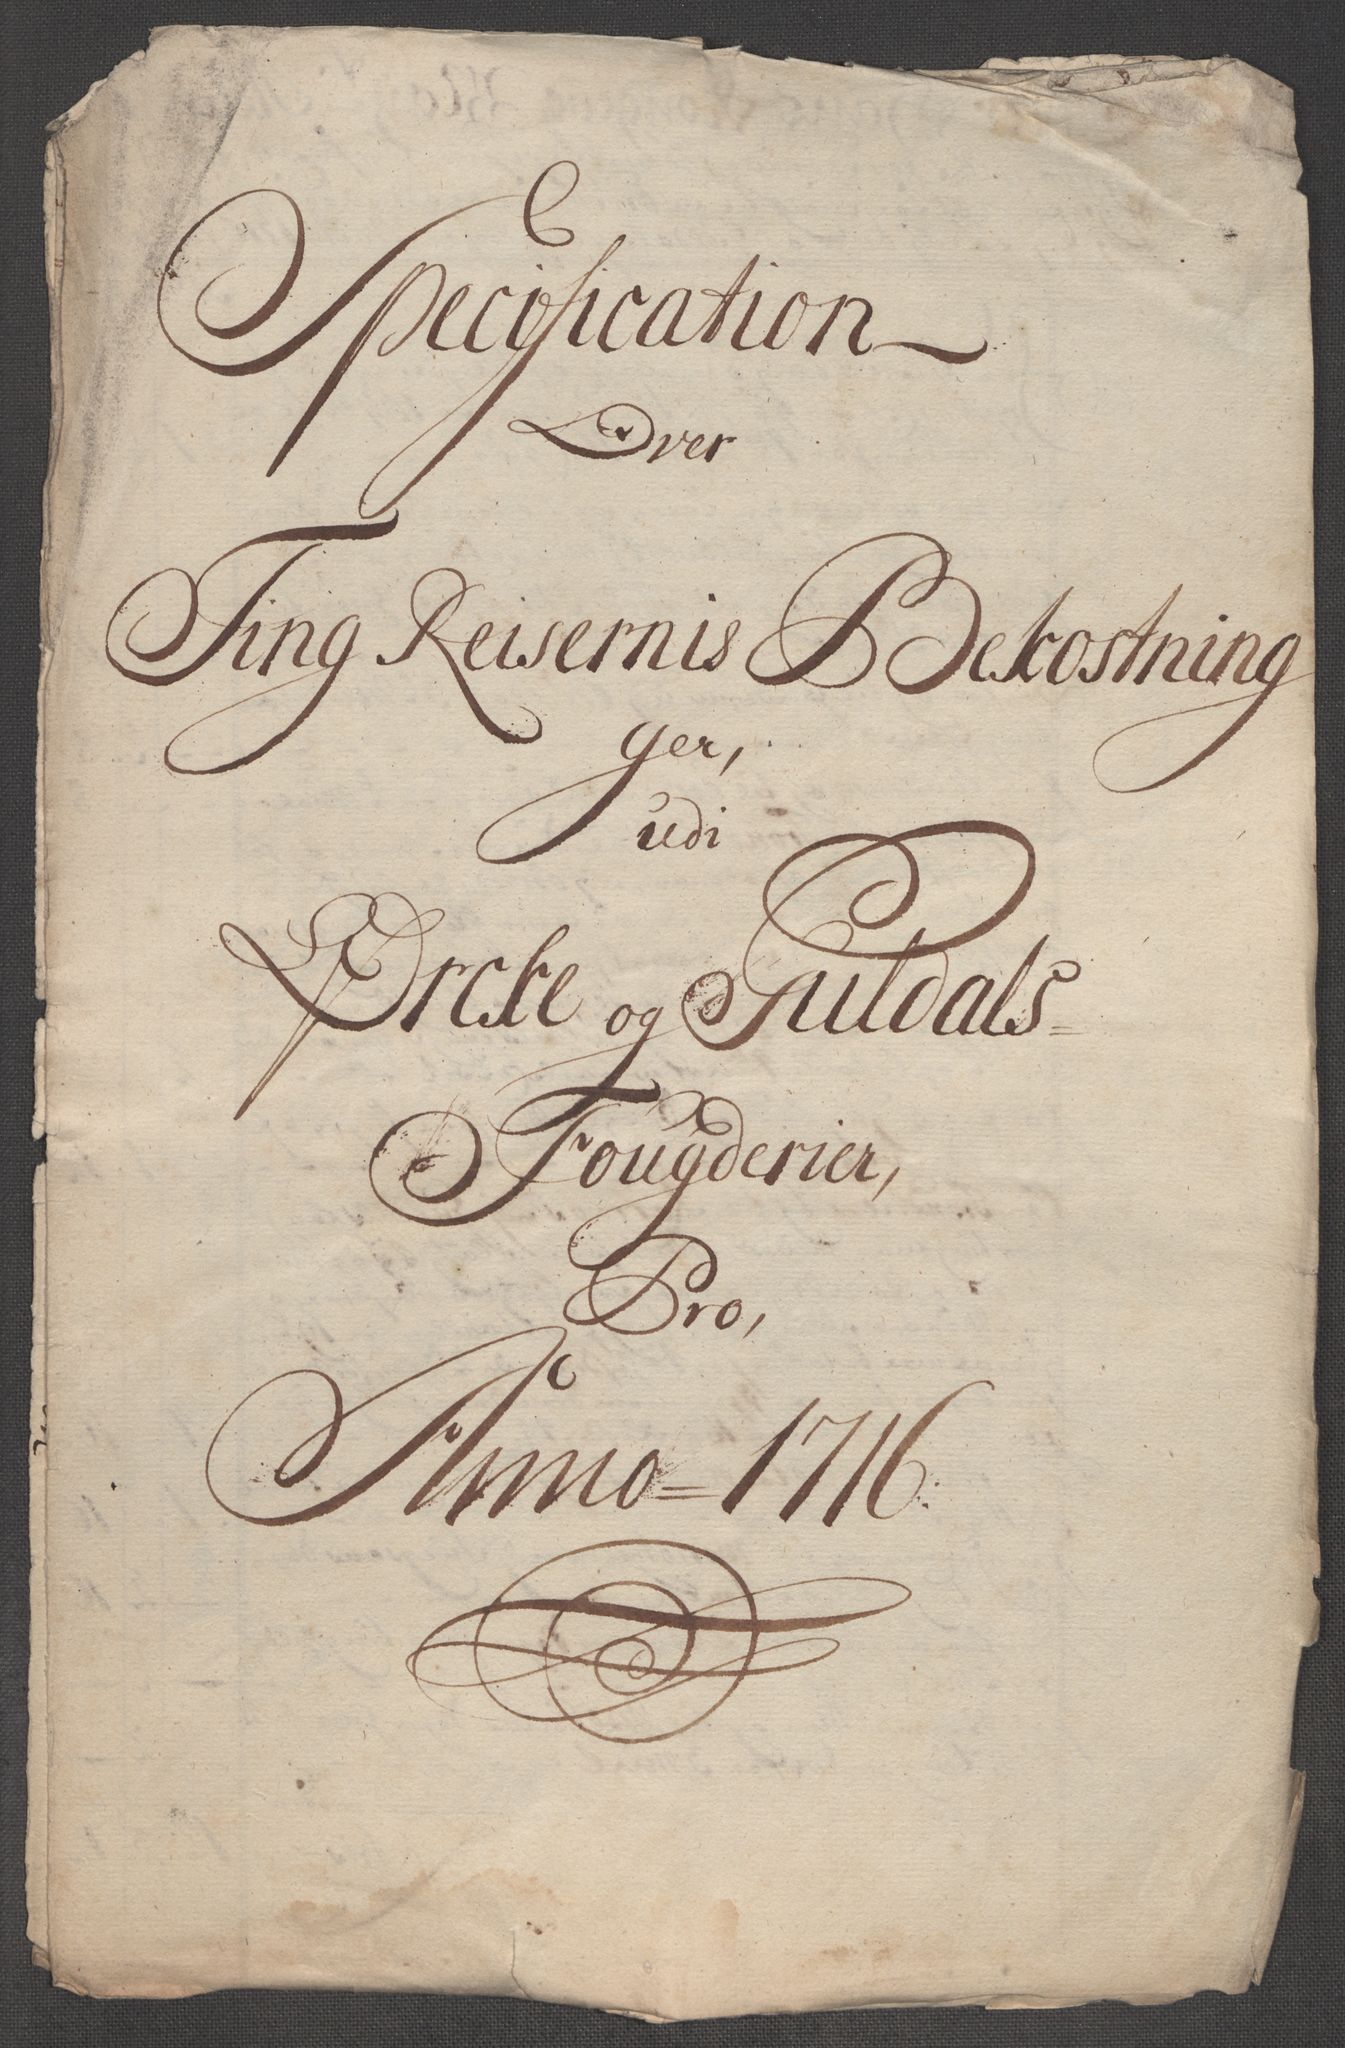 Specification
Over
Ting Reisernis Bekostning
ger,
udi
Ørcke og Guldals=
Fougderier,
Pro,
Anno= 1716